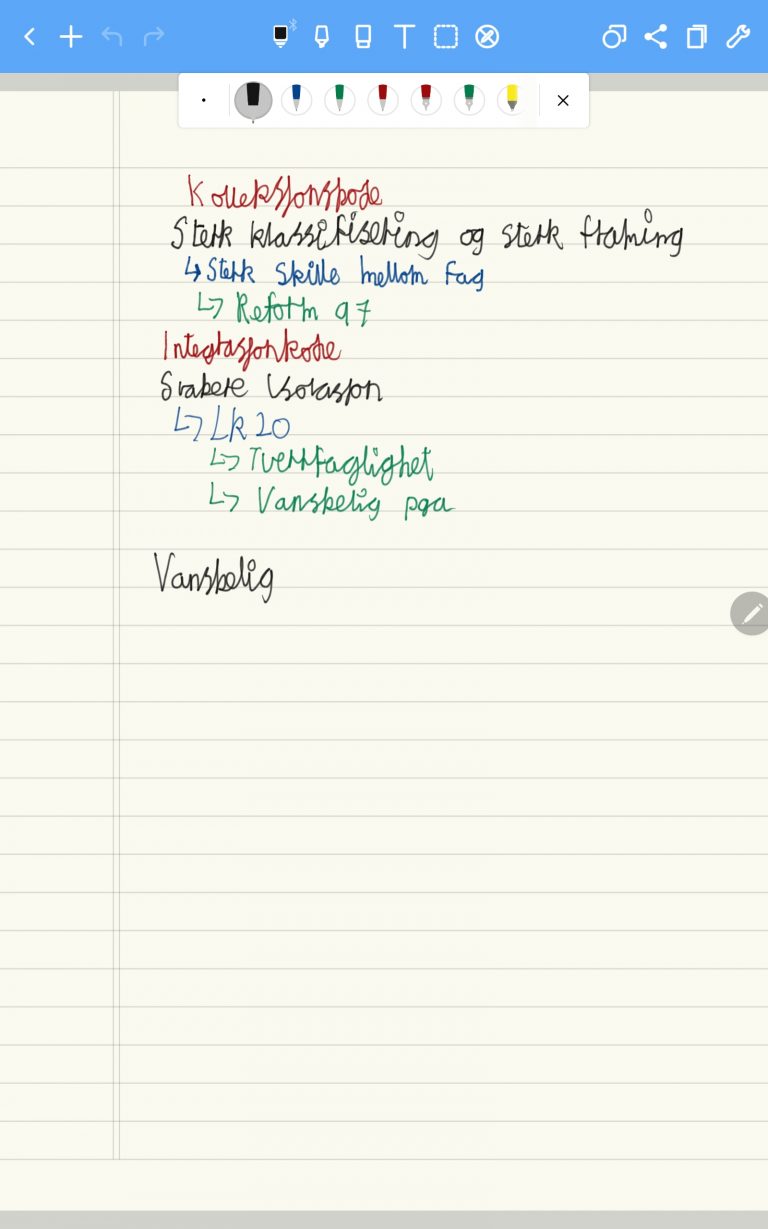 Kolleksjonskode
Sterk klassifisering og sterk framing
↳ Sterk skille mellom fag
↳ Reform 97
Integrasjonkode
Svakere isolasjon
↳ LK20
↳ Tverrfaglighet
↳ Vanskelig pga
Vanskelig